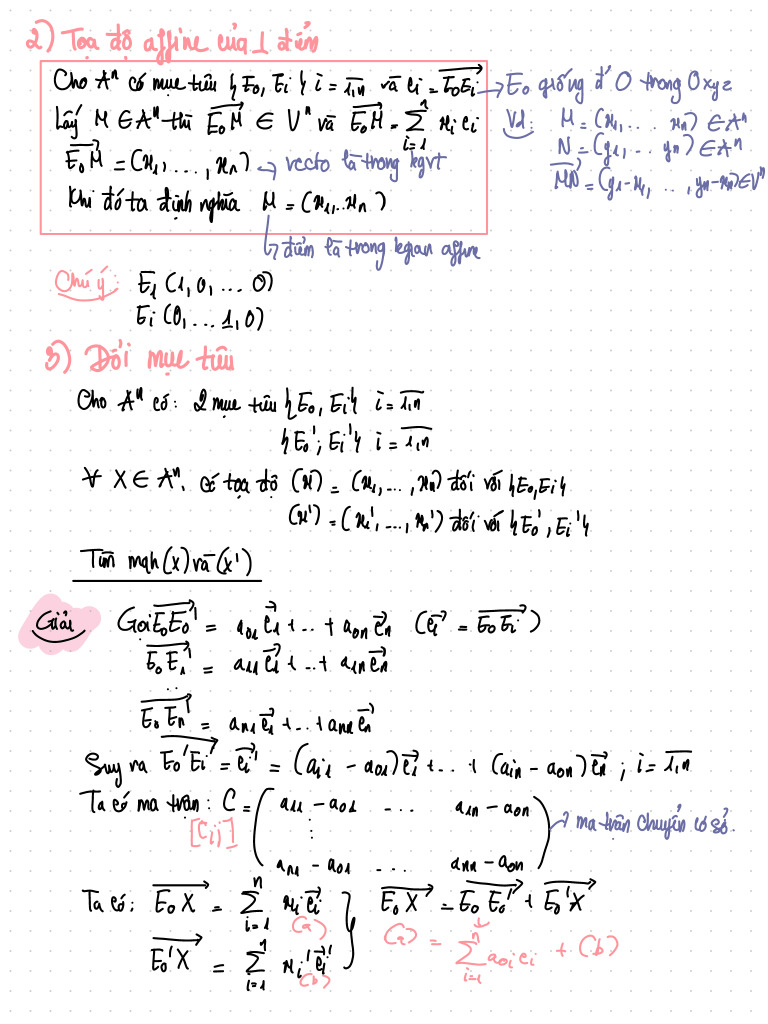 2) Tọa độ affine của 1 điểm
Cho Aⁿ có mục tiêu {E₀, Eᵢ} i = 1,n và eᵢ = E₀Eᵢ → E₀ giống đ' O trong Oxyz
Lấy M ∈ Aⁿ thì E₀M ∈ Vⁿ và E₀M = Σ xᵢ eᵢ
n
i=1
E₀M = (x₁, ..., xₙ) → vectơ là trong kgvt
Khi đó ta định nghĩa M = (x₁,..xₙ)
↳ điểm là trong kgian affine
Vd: M = (x₁, ... xₙ) ∈ Aⁿ
N = (y₁, ... yₙ) ∈ Aⁿ
MN = (y₁-x₁, ..., yₙ-xₙ) ∈ Vⁿ
Chú ý: E₁ (1, 0, ... 0)
Eᵢ (0, ... 1, 0)
3) Đổi mục tiêu
Cho Aⁿ có: 2 mục tiêu {E₀, Eᵢ} i = 1,n
{E₀'; Eᵢ'} i = 1,n
∀ X ∈ Aⁿ, có tọa độ (x) = (x₁, ..., xₙ) đối với {E₀, Eᵢ}
(x') = (x₁', ..., xₙ') đối với {E₀', Eᵢ'}
Tìm mqh (x) và (x')
Giải
Gọi E₀E₀' = a₀₁ e₁ + .. + a₀ₙ eₙ (eᵢ = E₀Eᵢ)
E₀E₁' = a₁₁ e₁ + .. + a₁ₙ eₙ
..
E₀Eₙ' = aₙ₁ e₁ + .. + aₙₙ eₙ
Suy ra E₀'Eᵢ' = eᵢ' = (aᵢ₁ - a₀₁) e₁ + .. + (aᵢₙ - a₀ₙ) eₙ ; i = 1,n
Ta có ma trận: C = ( a₁₁ - a₀₁ ... a₁ₙ - a₀ₙ
[Cᵢⱼ] ⋮ → ma trận chuyển cơ sở.
aₙ₁ - a₀₁ ... aₙₙ - a₀ₙ )
Ta có: E₀X = Σ xᵢ eᵢ
n
i=1
(a)
E₀'X = Σ xᵢ' eᵢ'
n
i=1
(b)
E₀X = E₀E₀' + E₀'X
(a) = Σ a₀ᵢ eᵢ + (b)
n
i=1